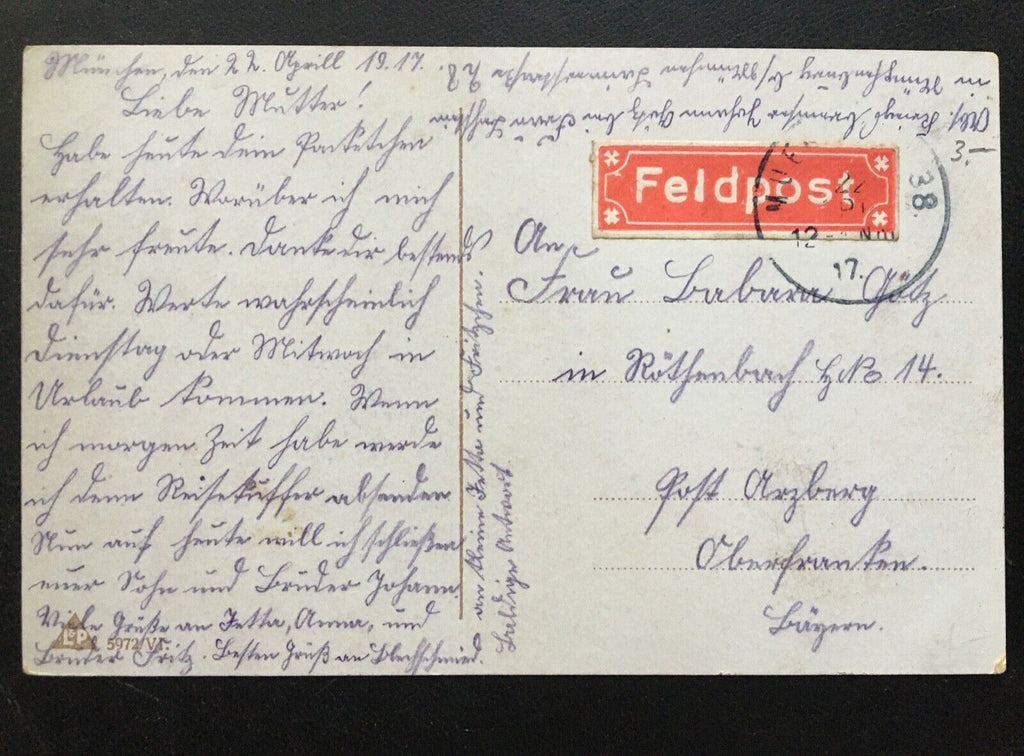 München, den 22. Aprill 19.17.
Liebe Mutter!
Habe heute dein Packetchen
erhalten. Worüber ich mich
sehr freute. Danke dir bestends
dafür. Werte wahrscheinlich
Dienstag oder Mitwoch in
Urlaub kommen. Wenn
ich morgen Zeit habe werde
ich denn Reisekuffer absenden
Nun auf heute will ich schließen
euer Sohn und Bruder Johann
Viele Grüße an Jetta, Anna, und
Bruder Fritz. Besten Gruß an Blechschmied.
an kleine Jetta und Fritzchen.
Baldige Antwort.
Abs:
in
3.-
Feldpost
22
12 - Nm
17.
38.
An
Frau Babara Götz
in Röthenbach H№ 14.
Post Arzberg
Oberfranken.
Bayern.
L&P
5972/VI.